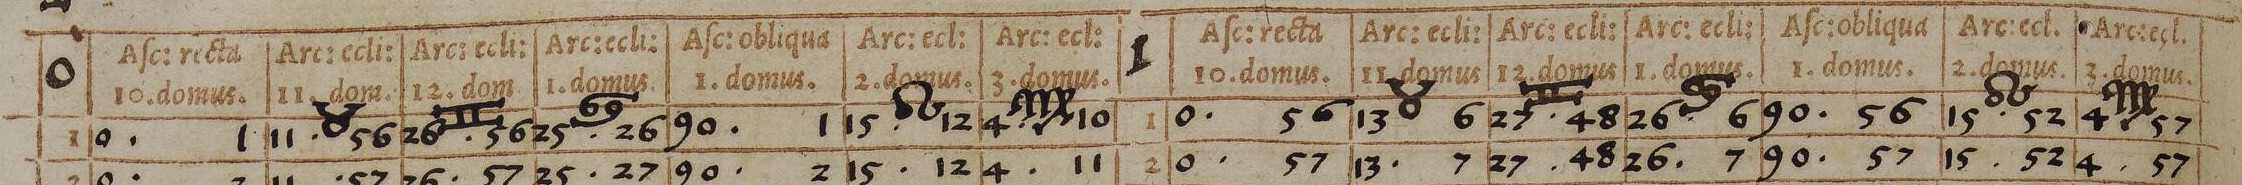 0 Asc: recta Arc: ecli: Arc: ecli: Arc: ecli: Asc: obliqua Arc: ecl: Arc: ecl: 1 Asc: recta Arc: ecli: Arc: ecli: Arc: ecli: Asc: obliqua Arc: ecl. Arc: ecl.
10. domus. 11. dom. 12. dom 1. domus 1. domus. 2. domus. 3. domus. 10. domus. 11. domus 12. domus 1. domus. 1. domus. 2. domus. 3. domus.
♉ ♊ ♋ ♌ ♍ ♉ ♊ ♋ ♌ ♍
1 0. 1 11. 56 26. 56 25. 26 90. 1 15. 12 4. 10 1 0. 56 13 6 27. 48 26. 6 90. 56 15. 52 4. 57
2 0. 2 11. 57 26. 57 25. 27 90. 2 15. 12 4. 11 2 0. 57 13. 7 27. 48 26. 7 90. 57 15. 52 4. 57